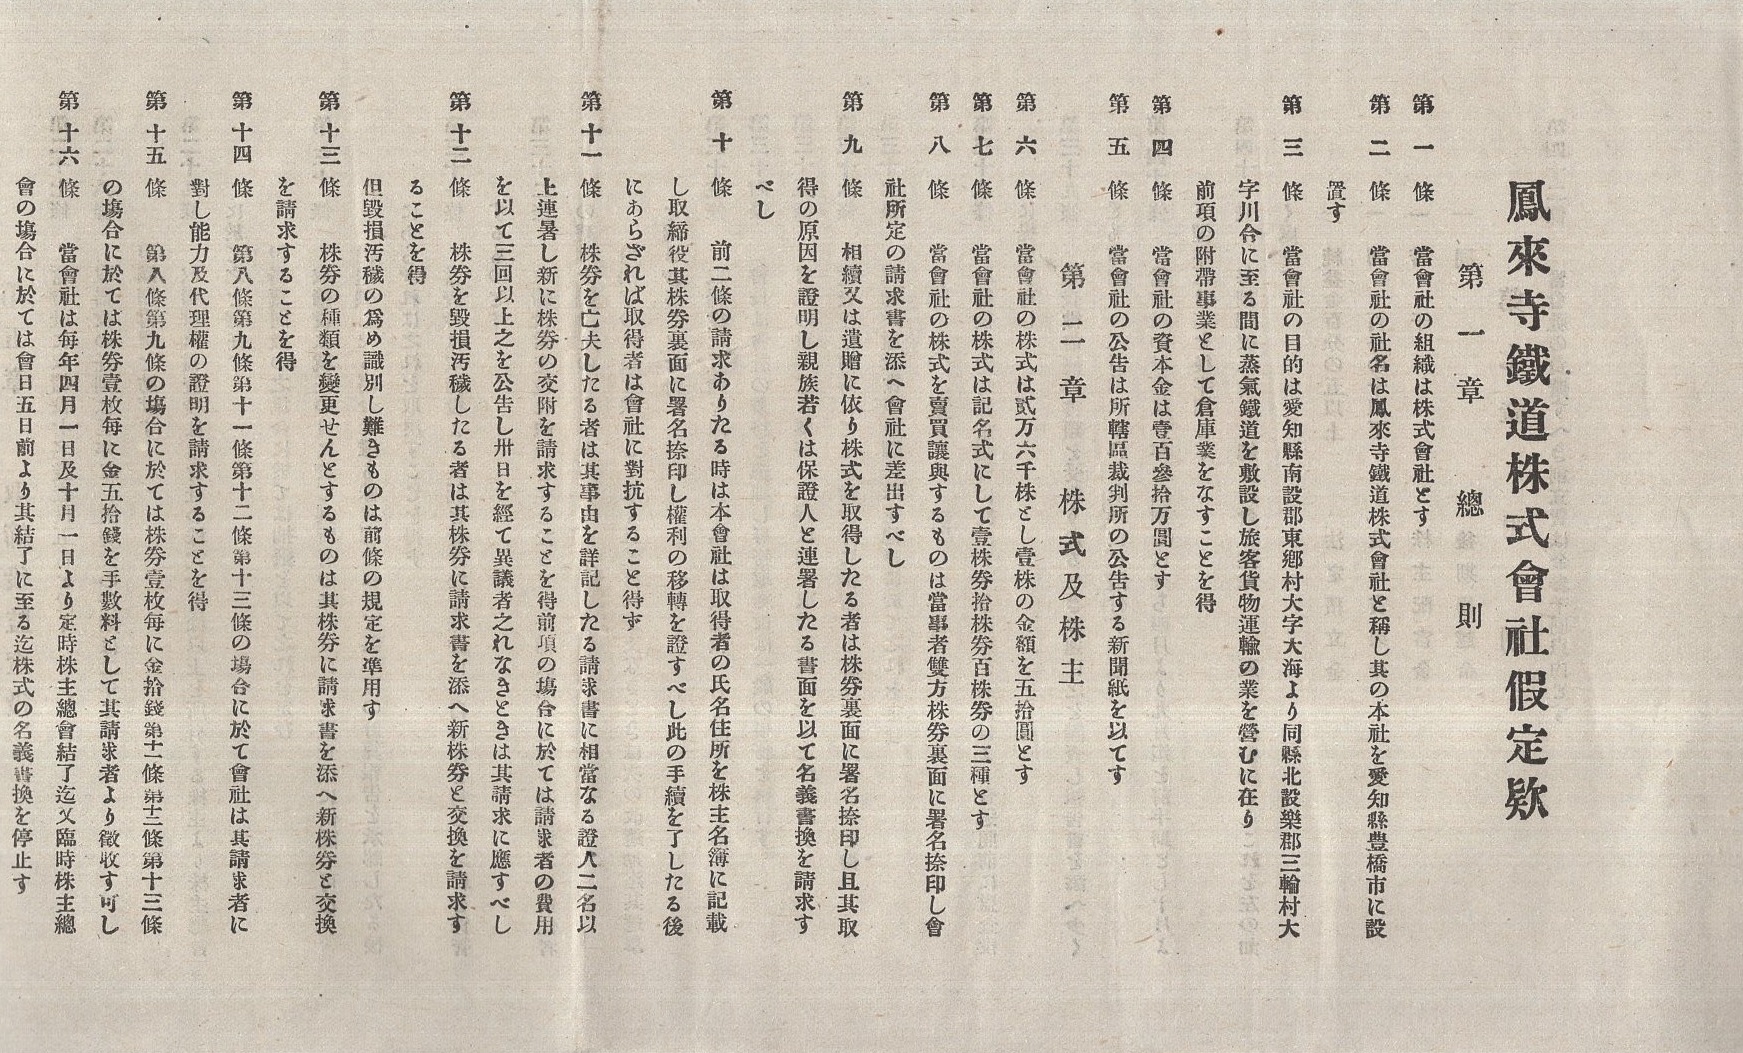 鳳來寺鐵道株式會社假定欵
第一章 總則
第一條 當會社の組織は株式會社とす
第二條 當會社の社名は鳳來寺鐵道株式會社と稱し其の本社を愛知縣豊橋市に設
置す
第三條 當會社の目的は愛知縣南設郡東鄕村大字大海より同縣北設樂郡三輪村大
字川合に至る間に蒸氣鐵道を敷設し旅客貨物運輸の業を營むに在り
前項の附帶事業として倉庫業をなすことを得
第四條 當會社の資本金は壹百參拾万圓とす
第五條 當會社の公告は所轄區裁判所の公告する新聞紙を以てす
第二章 株式及株主
第六條 當會社の株式は貳万六千株とし壹株の金額を五拾圓とす
第七條 當會社の株式は記名式にして壹株券拾株券百株券の三種とす
第八條 當會社の株式を賣買讓與するものは當事者雙方株券裏面に署名捺印し會
社所定の請求書を添へ會社に差出すべし
第九條 相續又は遺贈に依り株式を取得したる者は株券裏面に署名捺印し且其取
得の原因を證明し親族若くは保證人と連署したる書面を以て名義書換を請求す
べし
第十條 前二條の請求ありたる時は本會社は取得者の氏名住所を株主名簿に記載
し取締役其株券裏面に署名捺印し權利の移轉を證すべし此の手續を了したる後
にあらざれば取得者は會社に對抗すること得ず
第十一條 株券を亡失したる者は其事由を詳記したる請求書に相當なる證人二名以
上連署し新に株券の交附を請求することを得前項の塲合に於ては請求者の費用
を以て三回以上之を公告し卅日を經て異議者之れなきときは其請求に應すべし
第十二條 株券を毀損汚穢したる者は其株券に請求書を添へ新株券と交換を請求す
ることを得
但毀損汚穢の爲め識別し難きものは前條の規定を準用す
第十三條 株券の種類を變更せんとするものは其株券に請求書を添へ新株券と交換
を請求することを得
第十四條 第八條第九條第十一條第十二條第十三條の塲合に於て會社は其請求者に
對し能力及代理權の證明を請求することを得
第十五條 第八條第九條の塲合に於ては株券壹枚每に金拾錢第十一條第十二條第十三條
の塲合に於ては株券壹枚每に金五拾錢を手數料として其請求者より徵收す可し
第十六條 當會社は每年四月一日及十月一日より定時株主總會結了迄又臨時株主總
會の塲合に於ては會日五日前より其結了に至る迄株式の名義書換を停止す